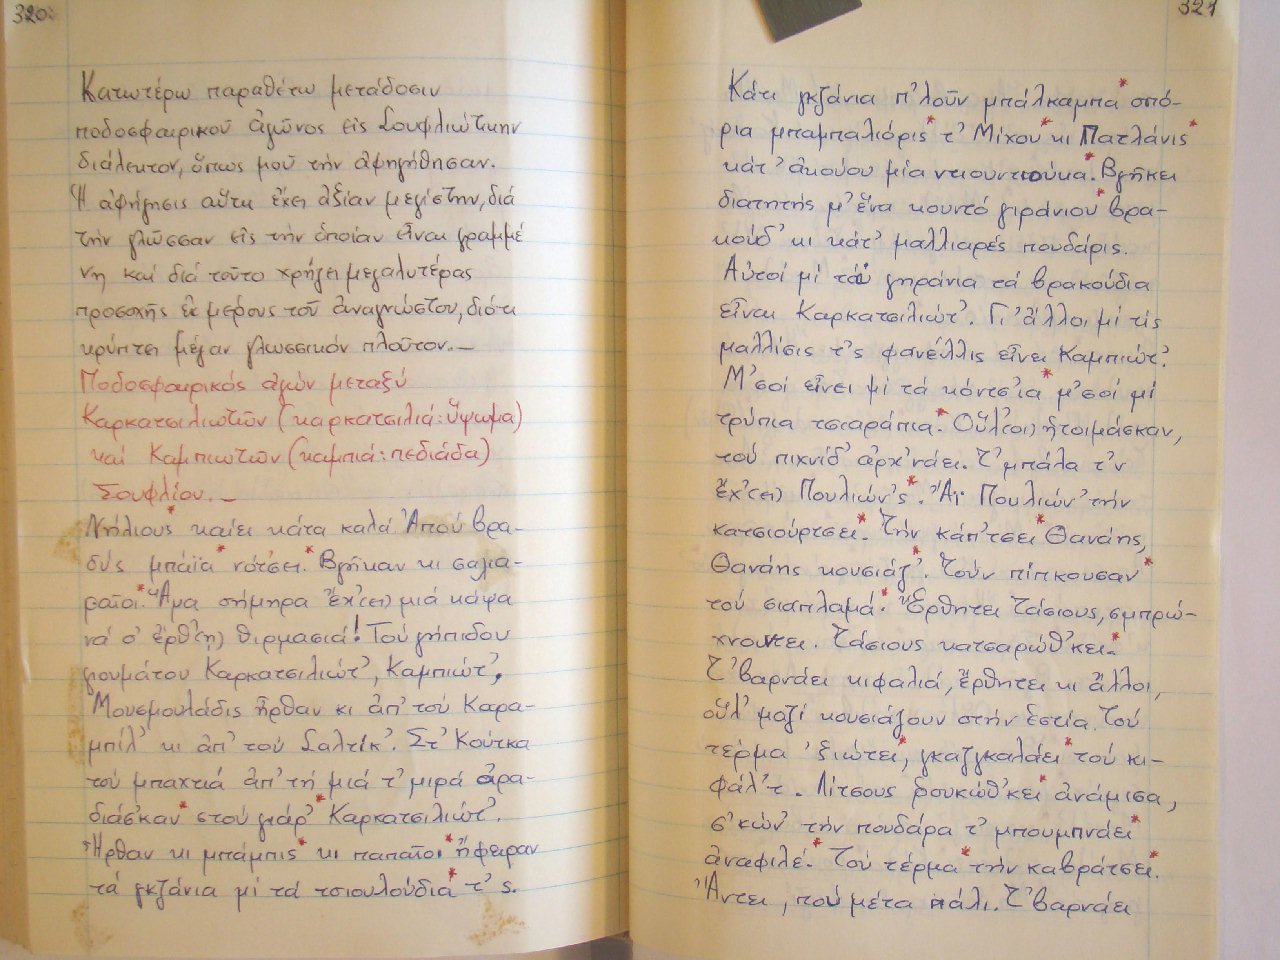 320
Κατωτέρω παραθέτω μετάδοσιν
ποδοσφαιρικοῦ ἀγῶνος εἰς Σουφλιώτικην
διάλεκτον, ὅπως μοῦ τὴν ἀφηγήθησαν.
Ἡ ἀφήγησις αὕτη ἔχει ἀξίαν μεγίστην, διά
τὴν γλῶσσαν εἰς τὴν ὁποίαν εἶναι γραμμέ
νη καί διά τοῦτο χρήζει μεγαλυτέρας
προσοχῆς ἐκ μέρους τοῦ ἀναγνώστου, διότι
κρύπτει μέγαν γλωσσικόν πλοῦτον.—
Ποδοσφαιρικός ἀγών μεταξύ
Καρκατσιλιωτῶν (καρκατσιλιά: ὕψωμα)
καί Καμπιωτῶν (καμπιά: πεδιάδα)
Σουφλίου.—
Νήλιους* καίει κάτα καλά Ἀπού βρα-
δύς μπάϊα* νότσει.* Βγῆκαν κι σαλια-
ραῖοι.* Ἅμα σήμηρα ἔχ'(ει) μιά κάψα
νά σ' ἔρθ'(η) θιρμασιά! Τού γήπιδου
γιουμάτου Καρκατσιλιώτ', Καμπιώτ'.
Μουσμουλάδις ἦρθαν κι ἀπ' τού Καρα-
μπίλ' κι ἀπ' τού Σαλτίκ'. Στ' Κούτκα
τού μπαχτιά ἀπ' τή μιά τ' μιρά ἀρα-
διάσ'καν* στού γιάρ'* Καρκατσιλιώτ'.
Ἦρθαν κι μπάμπις* κι παπαῖοι* ἤφειραν
τά γκζάνια μί τά τσιουλούδια* τ'ς.
321
Κάτι γκζάνια π'λοῦν μπάλκαμπα* σπό-
ρια μπαμπαλιόρις* τ' Μίχου* κι Πατλάνις*
κάτ' ἀκούου μία ντιουντιούκα.* Βγῆκει
διατητής μ' ἕνα κουντό γιράνιου* βρα-
κούδ' κι κάτ' μαλλιαρές πουδάρις.
Αὐτοί μί τά γηράνια τά βρακούδια
εἶναι Καρκατσιλιώτ'. Γι' ἄλλοι μί τίς
μαλλίσις τ'ς φανέλλις εἶνει Καμπιώτ'.
Μ'σοί εἶνει μί τά κόντσ'ια* μ'σοί μί
τρύπια τσιαράπια.* Οὕλ'(οι) ἡτοιμάσκαν,
τού πιχνίδ' ἀρχ'νάει. Τ' μπάλα τ'ν
ἔχ'(ει) Πουλιών'ς*. Ἄϊ Πουλιών' τήν
κατσιούρτσει.* Τήν κάπ'τσει* Θανάης,
Θανάης κουσιάζ'*. Τούν πίπκουσαν*
τού σιαπλαμά.* Ἔρθητει Τάσιους, σμπρώ-
χνουντει. Τάσιους κατσαρώθ'κει.*
Τ' βαρνάει κιφαλιά, ἔρθητει κι ἄλλοι,
οὕλ' μαζί κουσιάζουν στήν ἑστία. Τού
τέρμα 'ξιώτει*, γκαζγκαλάει* τού κι-
φάλ'τ. Λίτσους βουκώθ'κει* ἀνάμισα,
σ'κών' τήν πουδάρα τ' μπουμπνάει*
ἀναφιλέ.* Τού τέρμα* τήν καβράτσει.*
Ἄντει, πού μέτα πάλι. Τ' βαρνάει